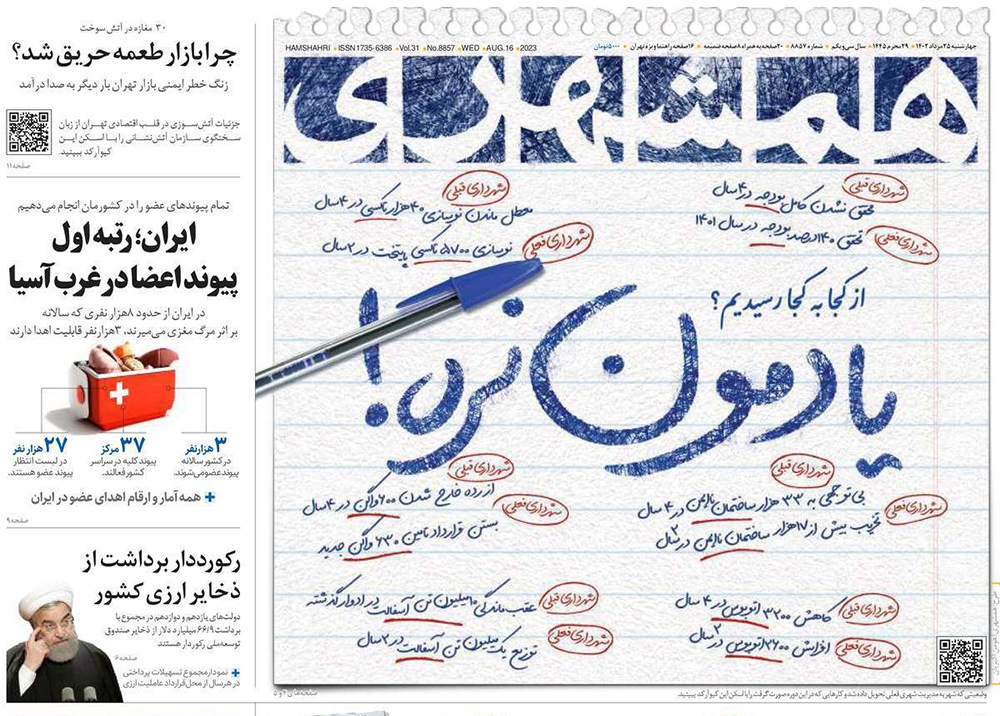 چهارشنبه ۲۵ مرداد ۱۴۰۲ ■ ۲۹ محرم ۱۴۴۵ ■ سال سی و یکم ■ شماره ۸۸۵۷ ■ ۲۰ صفحه به همراه ۸ صفحه ضمیمه ■ ۱۶ صفحه راهنما ویژه تهران ■ ۵۰۰۰ تومان
HAMSHAHRI ■ ISSN 1735-6386 ■ Vol.31 ■ No.8857 ■ WED ■ AUG.16 ■ 2023
همشهری
شهرداری قبلی
محقق نشدن کامل بودجه در ۴ سال
شهرداری فعلی
تحقق ۱۴۰ درصد بودجه در سال ۱۴۰۱
شهرداری قبلی
معطل ماندن نوسازی ۴۰ هزار تاکسی در ۴ سال
شهرداری فعلی
نوسازی ۵۷۰۰ تاکسی پایتخت در ۲ سال
از کجا به کجا رسیدیم؟
یادمون نره!
شهرداری قبلی
بی توجهی به ۳۳ هزار ساختمان ناایمن در ۴ سال
شهرداری فعلی
تخریب بیش از ۱۷ هزار ساختمان ناایمن در ۲ سال
شهرداری قبلی
از رده خارج شدن ۶۰۰ واگن در ۴ سال
شهرداری فعلی
بستن قرارداد تامین ۶۳۰ واگن جدید
شهرداری قبلی
کاهش ۳۲۰۰ اتوبوس در ۴ سال
شهرداری فعلی
افزایش ۲۶۰۰ اتوبوس در ۲ سال
شهرداری قبلی
عقب ماندگی ۱۰ میلیون تن آسفالت در ادوار گذشته
شهرداری فعلی
توزیع یک میلیون تن آسفالت در ۲ سال
وضعیتی که شهر به مدیریت شهری فعلی تحویل داده شد و کارهایی که در این دوره صورت گرفت را با اسکن این کیوآرکد ببینید
صفحه‌های ۴ و ۵
۳۰ مغازه در آتش سوخت
چرا بازار طعمه حریق شد؟
زنگ خطر ایمنی بازار تهران بار دیگر به صدا درآمد
جزئیات آتش‌سوزی در قلب اقتصادی تهران از زبان
سخنگوی سازمان آتش‌نشانی را با اسکن این
کیوآرکد ببینید.
صفحه ۱۱
تمام پیوندهای عضو را در کشورمان انجام می‌دهیم
ایران؛ رتبه اول
پیوند اعضا در غرب آسیا
در ایران از حدود ۸ هزار نفری که سالانه
بر اثر مرگ مغزی می‌میرند، ۳ هزار نفر قابلیت اهدا دارند
۳ هزار نفر
در کشور سالانه
پیوند عضو می‌شوند.
۳۷ مرکز
پیوند کلیه در سراسر
کشور فعالند.
۲۷ هزار نفر
در لیست انتظار
پیوند عضو هستند.
+ همه آمار و ارقام اهدای عضو در ایران
صفحه ۹
رکورددار برداشت از
ذخایر ارزی کشور
دولت‌های یازدهم و دوازدهم در مجموع با
برداشت ۶۶/۹ میلیارد دلار از ذخایر صندوق
توسعه ملی رکورددار هستند
صفحه ۶
+ نمودار مجموع تسهیلات پرداختی
در هر سال از محل قرارداد عاملیت ارزی